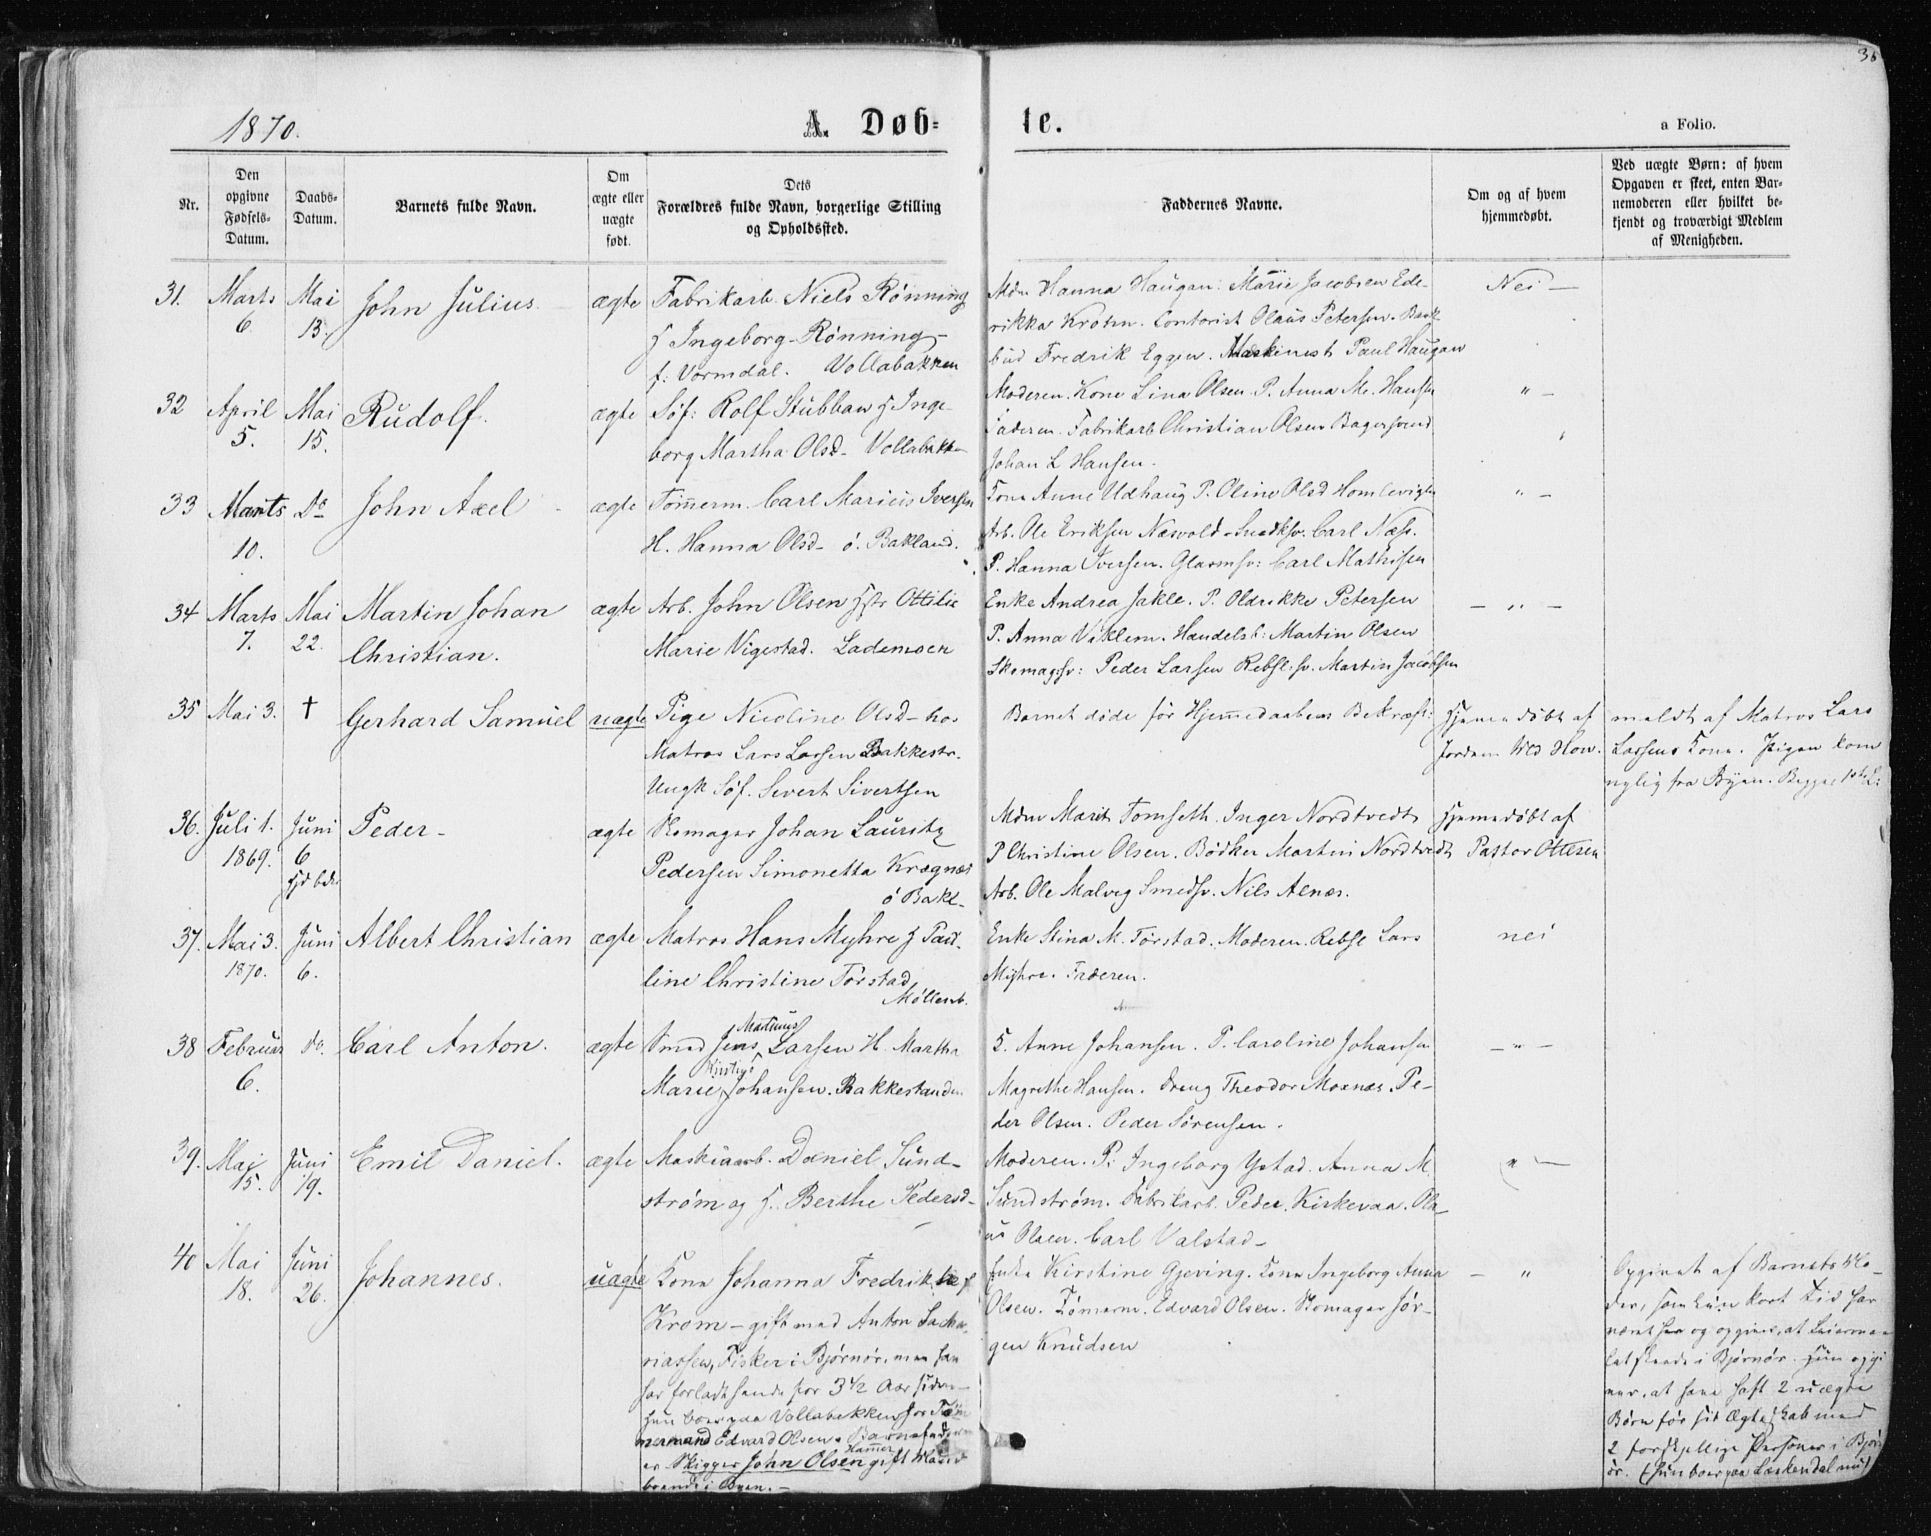 36
1870.
A. Døb-
te.
a Folio.
Nr.
Den
opgivne
Fødsels-
Datum.
Daabs-
Datum.
Barnets fulde Navn.
Om
ægte eller
uægte
født.
Dets
Forældres fulde Navn, borgerlige Stilling
og Opholdssted.
Faddernes Navne.
Om og af hvem
hjemmedøbt.
Ved uægte Børn: af hvem
Opgaven er skeet, enten Bar-
nemoderen eller hvilket be-
kjendt og troværdigt Medlem
af Menigheden.
31.
Marts
6
Mai
13.
John Julius
ægte
Fabrikarb. Niels Rønning
H Ingeborg Rønning
f: Vormdal. Vollabakken
Mdm Hanna Haugan. Marie Jacobsen Ede-
rikka Krohn. Contorist Olaus Petersen. Bank-
bud Fredrik Eggen. Maskinist Paul Haugan
Nei —
32
April
5.
Mai
15.
Rudolf.
ægte
Søf: Rolf Stubban H Inge-
borg Martha Olsd- Vollabakken
Moderen. Kone Lina Olsen P. Anna M. Hansen
Faderen. Fabrikarb Christian Olsen Bagersvend
Johan L Hansen.
" —
33
Marts
10.
Do
John Axel
ægte
Tømerm. Carl Marius Iversen
H. Hanna Olsd- ø. Bakland.
Kone Anne Udhaug P. Oline Olsd Homlevigen
Arb. Ole Eriksen Næsvold. Snedksv. Carl Næss.
P. Hanna Iversen. Glasmsv: Carl Mathisen
" —
34
Marts
7.
Mai
22.
Martin Johan
Christian.
ægte
Arb. John Olsen Hstr Ottilie
Marie Vigestad. Lademoen
Enke Andrea Jakle. P. Oldrikke Petersen
P. Anna Viklem. Handelsb: Martin Olsen
Skomagsv: Peder Larsen Rebsl:sv. Martin Jacobsen
— " —
35
Mai 3.
†
Gerhard Samuel
uægte
Pige Nicoline Olsd- hos
Matros Lars Larsen Bakkestr.
Ungk Søf. Sivert Sivertsen
Barnet døde før Hjemmedaabens Bekræft:
Hjemmedøbt af
Jordem. Wed Hov.
meldt af Matros Lars
Larsens Kone. Pigen kom
nylig fra Byen. Begges 1ste L:
36.
Juli 1.
1869.
Juni
6
Peder-
ægte
Skomager Johan Lauritz
Pedersen Simonetta Kragnæs
ø Bakl-
Mdm Marit Tomseth. Inger Nordtvedt
P Christine Olsen. Bødker Martin Nordtvedt
Arb. Ole Malvig Smedsv. Nils Alnæs.
Hjemmedøbt af
Pastor Ottesen
37.
Mai 3.
1870.
Juni
6.
Albert Christian
ægte
Matros Hans Myhre H Paul-
line Christine Torstad
Møllenb.
Enke Stina M. Torstad. Moderen. Rebsl Lars
Myhre. Faderen.
nei
38
Februar
6.
do.
Carl Anton.
ægte
Martinus
Smed Jens Larsen H. Martha
Kirstine
Marie Johansen. Bakkestranden
K. Anne Johansen. P. Caroline Johansen
Magrethe Hansen. Dreng Theodor Moxnæs. Pe-
der Olsen. Peder Sørensen.
— " —
39.
Mai
15.
Juni
19.
Emil Daniel.
ægte
Maskinarb. Daniel Sund-
strøm og H. Berthe Pedersd-
Moderen. P. Ingeborg Ystad. Anna M.
Sundstrøm. Fabrikarb. Peder Kirkevaa. Ola-
us Olsen. Carl Valstad-
" —
40
Mai
18.
Juni
26.
Johannes.
uægte
Kone Johanna Fredrikke f
Krom - gift med Anton Sacha-
riassen, Fisker i Bjørnør, men han
har forladt hende for 3 1/2 Aar siden-
hun boer paa Vollabakken hos Tøm
mermand Edvard Olsen. Barnefaderen
Hammer
er Skigger John Olsen gift Mand
boende i Byen.-
Enke Kirstine Gjeving. Kone Ingeborg Anna
Olsen. Tømerm. Edvard Olsen. Skomager Jør-
gen Knudsen
— "
Opgivet af Barnets Mo-
der, som kun kort Tid har
været her og opgives, at Leierma-
let skeede i Bjørnør. Hun opgi
ver, at have haft 2 uægte
Børn før sit Ægteskab med
2 forskjellige Personer i Bjør
ør. (hun boer paa Læskendal nu)